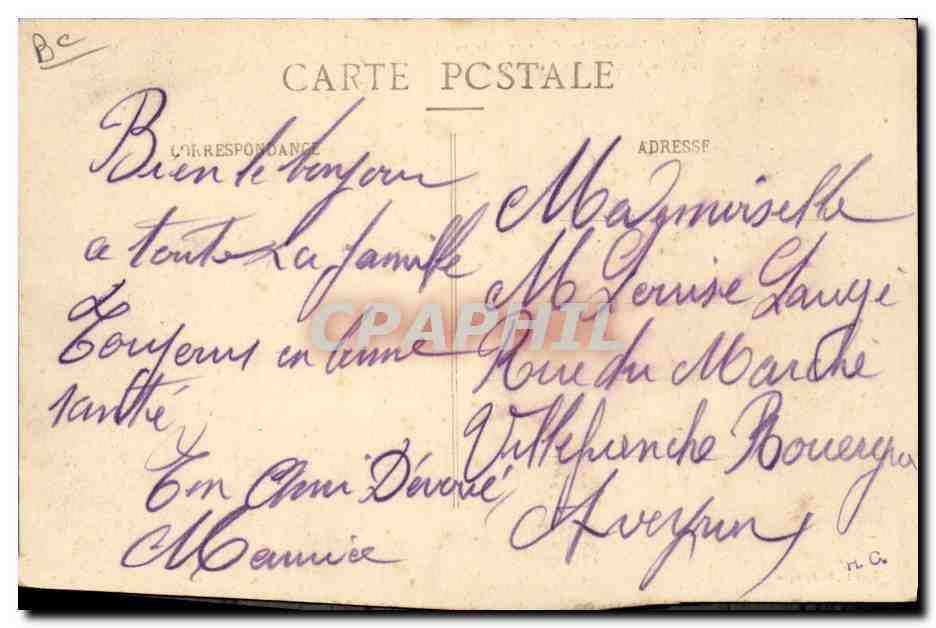 Bc
CARTE POSTALE
CORRESPONDANCE
Bien le bonjour
a toute La famille
Toujours en bonne
santé
Ton Ami Dévoué
Maurice
ADRESSE
Mademoiselle
M Louise Laugé
Rue du Marché
Villefranche Rouergue
Aveyron
CPAPHIL